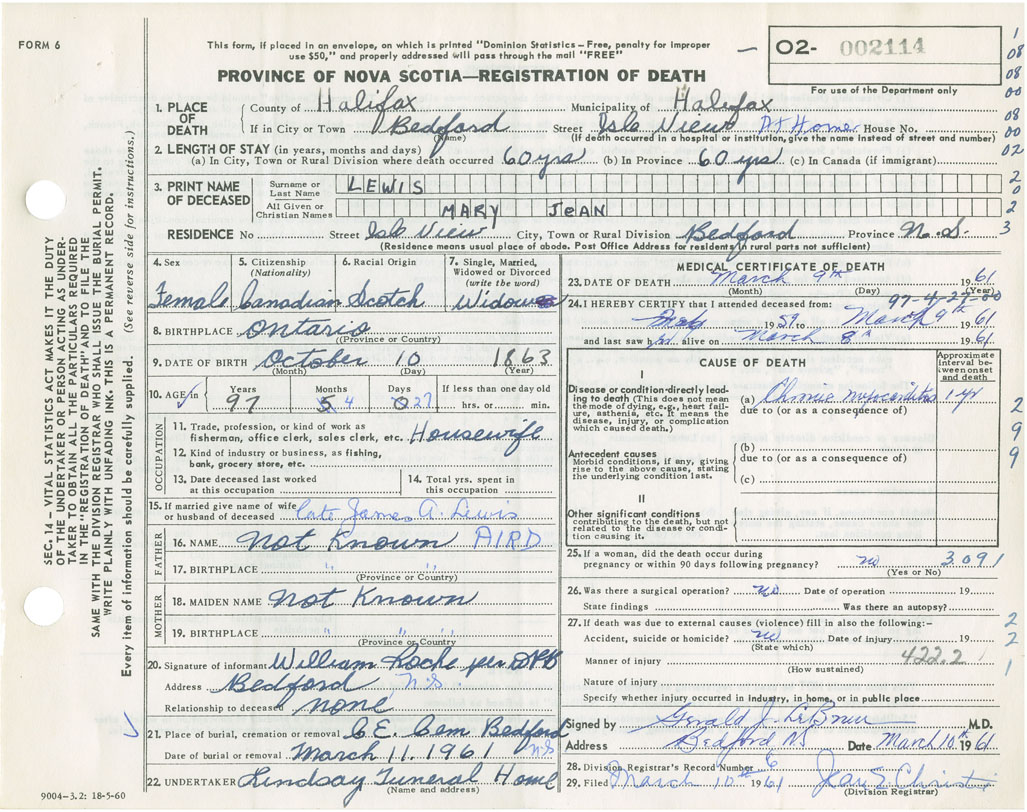 FORM 6
This form, if placed in an envelope, on which is printed "Dominion Statistics—Free, penalty for improper
use $50," and properly addressed will pass through the mail "FREE"
O2- 002114
For use of the Department only
PROVINCE OF NOVA SCOTIA—REGISTRATION OF DEATH
1. PLACE OF DEATH County of Halifax Municipality of Halifax
If in City or Town Bedford (Name) Street Isle View At Home House No.
(If death occurred in hospital or institution, give the name instead of street and number)
2. LENGTH OF STAY (in years, months and days)
(a) In City, Town or Rural Division where death occurred 60 yrs (b) In Province 60 yrs (c) In Canada (if immigrant)
3. PRINT NAME OF DECEASED Surname or Last Name LEWIS
All Given or Christian Names MARY JEAN
RESIDENCE No Street Isle View City, Town or Rural Division Bedford Province N.S.
(Residence means usual place of abode. Post Office Address for residents in rural parts not sufficient)
4. Sex 5. Citizenship (Nationality) 6. Racial Origin 7. Single, Married, Widowed or Divorced (write the word)
Female Canadian Scotch Widow
8. BIRTHPLACE Ontario
(Province or Country)
9. DATE OF BIRTH October 10 1863
(Month) (Day) (Year)
10. AGE in Years Months Days If less than one day old
97 5 4 0 27 hrs. or min.
OCCUPATION
11. Trade, profession, or kind of work as fisherman, office clerk, sales clerk, etc. Housewife
12. Kind of industry or business, as fishing, bank, grocery store, etc.
13. Date deceased last worked at this occupation
14. Total yrs. spent in this occupation
15. If married give name of wife or husband of deceased late James A. Lewis
FATHER
16. NAME Not Known AIRD
17. BIRTHPLACE " "
(Province or Country)
MOTHER
18. MAIDEN NAME Not Known
19. BIRTHPLACE " " "
(Province or Country)
20. Signature of informant William Roche per
Address Bedford N.S.
Relationship to deceased none
21. Place of burial, cremation or removal C.E. Cem Bedford
Date of burial or removal March 11. 1961 N.S
22. UNDERTAKER Lindsay Funeral Home
(Name and address)
MEDICAL CERTIFICATE OF DEATH
23. DATE OF DEATH March 9th 1961
(Month) (Day) (Year)
97-4-27-00
24. I HEREBY CERTIFY that I attended deceased from:
1959 to March 9th 1961
and last saw her alive on March 8th 1961
CAUSE OF DEATH
Approximate interval between onset and death
I
Disease or condition directly leading to death (This does not mean the mode of dying, e.g., heart failure, asthenia, etc. It means the disease, injury, or complication which caused death.)
(a) Chronic myocarditis 1 yr
due to (or as a consequence of)
Antecedent causes
Morbid conditions, if any, giving rise to the above cause, stating the underlying condition last.
(b)
due to (or as a consequence of)
(c)
II
Other significant conditions
contributing to the death, but not related to the disease or condition causing it.
25. If a woman, did the death occur during pregnancy or within 90 days following pregnancy? no 3091
(Yes or No)
26. Was there a surgical operation? no Date of operation 19
State findings Was there an autopsy?
27. If death was due to external causes (violence) fill in also the following:-
Accident, suicide or homicide? no Date of injury 19
(State which) 422.2
Manner of injury
(How sustained)
Nature of injury
Specify whether injury occurred in industry, in home, or in public place
Signed by Gerald J. LeBrun M.D.
Address Bedford NS Date March 10th 1961
28. Division Registrar's Record Number 6
29. Filed March 10th 1961
(Division Registrar)
SEC. 14 – VITAL STATISTICS ACT MAKES IT THE DUTY
OF THE UNDERTAKER OR PERSON ACTING AS UNDER-
TAKER TO OBTAIN ALL THE PARTICULARS REQUIRED
IN THE "REGISTRATION OF DEATH" AND TO FILE THE
SAME WITH THE DIVISION REGISTRAR WHO SHALL ISSUE THE BURIAL PERMIT.
WRITE PLAINLY WITH UNFADING INK–THIS IS A PERMANENT RECORD.
Every item of information should be carefully supplied. (See reverse side for instructions.)
1
08
08
00
08
00
02
2
0
2
3
2
9
9
2
2
1
9004–3.2: 18-5-60